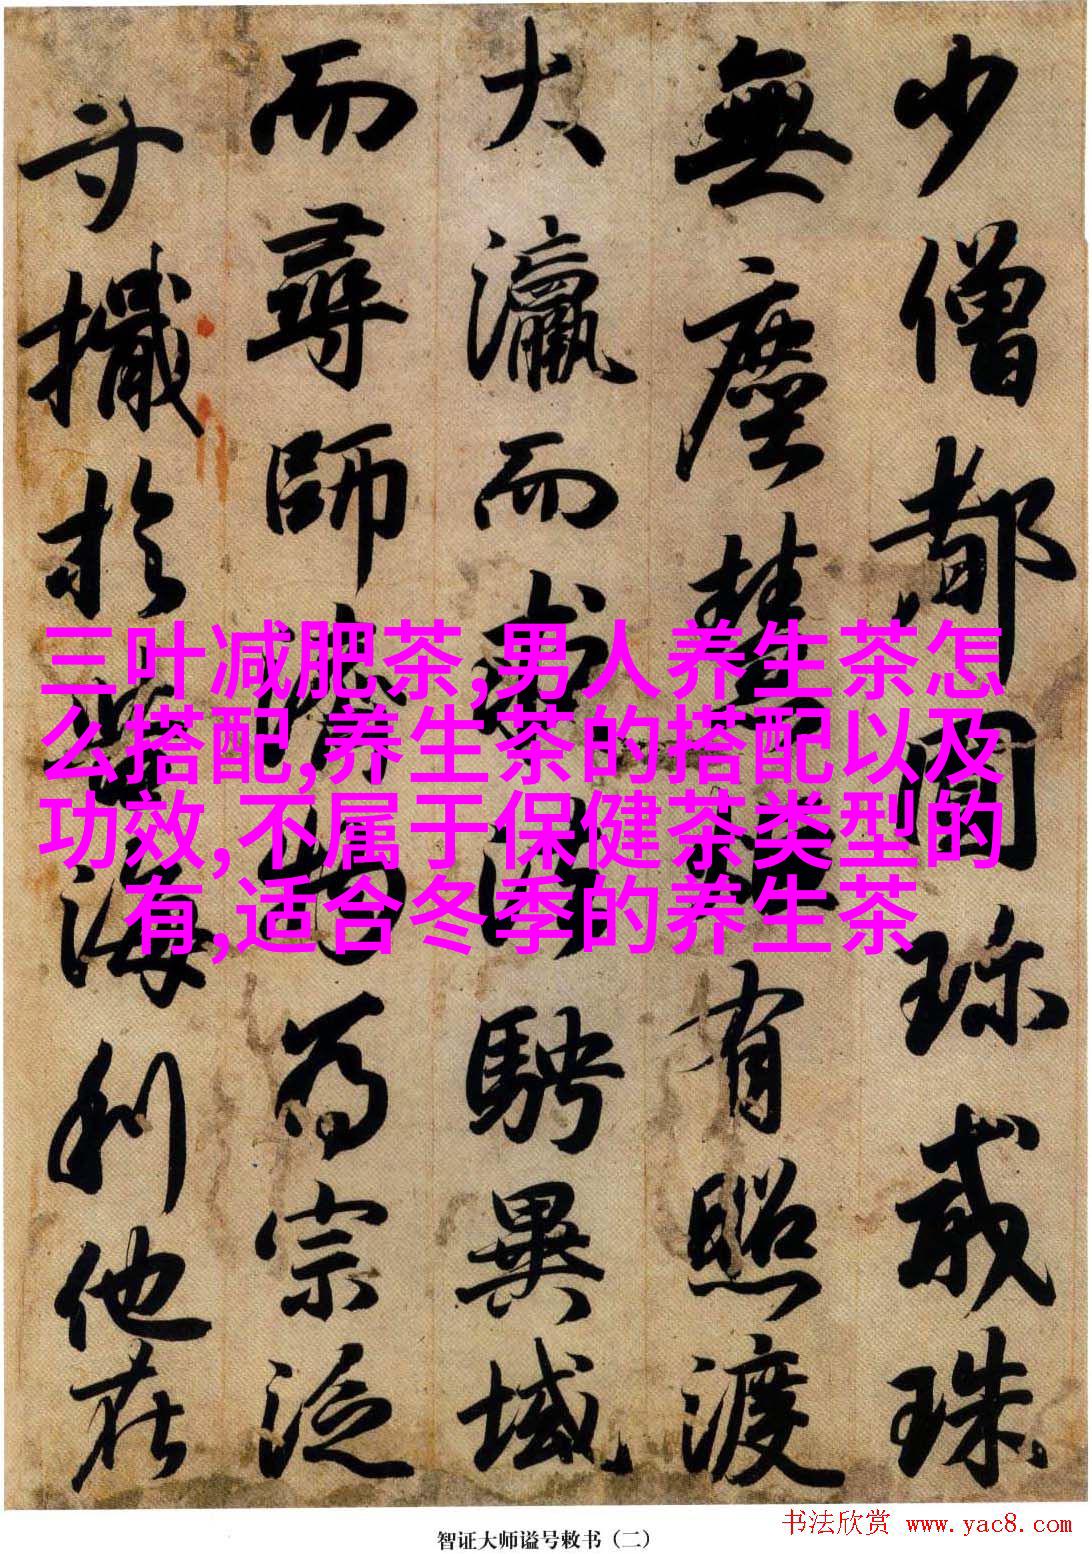 少僧都圓珎戒珠
無塵慧有照渡
大瀛而騁異域
而尋師為宗泛
於海利他在
三叶减肥茶,男人养生茶怎
么搭配,养生茶的搭配以及
功效,不属于保健茶类型的
有,适合冬季的养生茶
智证大师谥号敕书（二）
书法欣赏 www.yac8.com